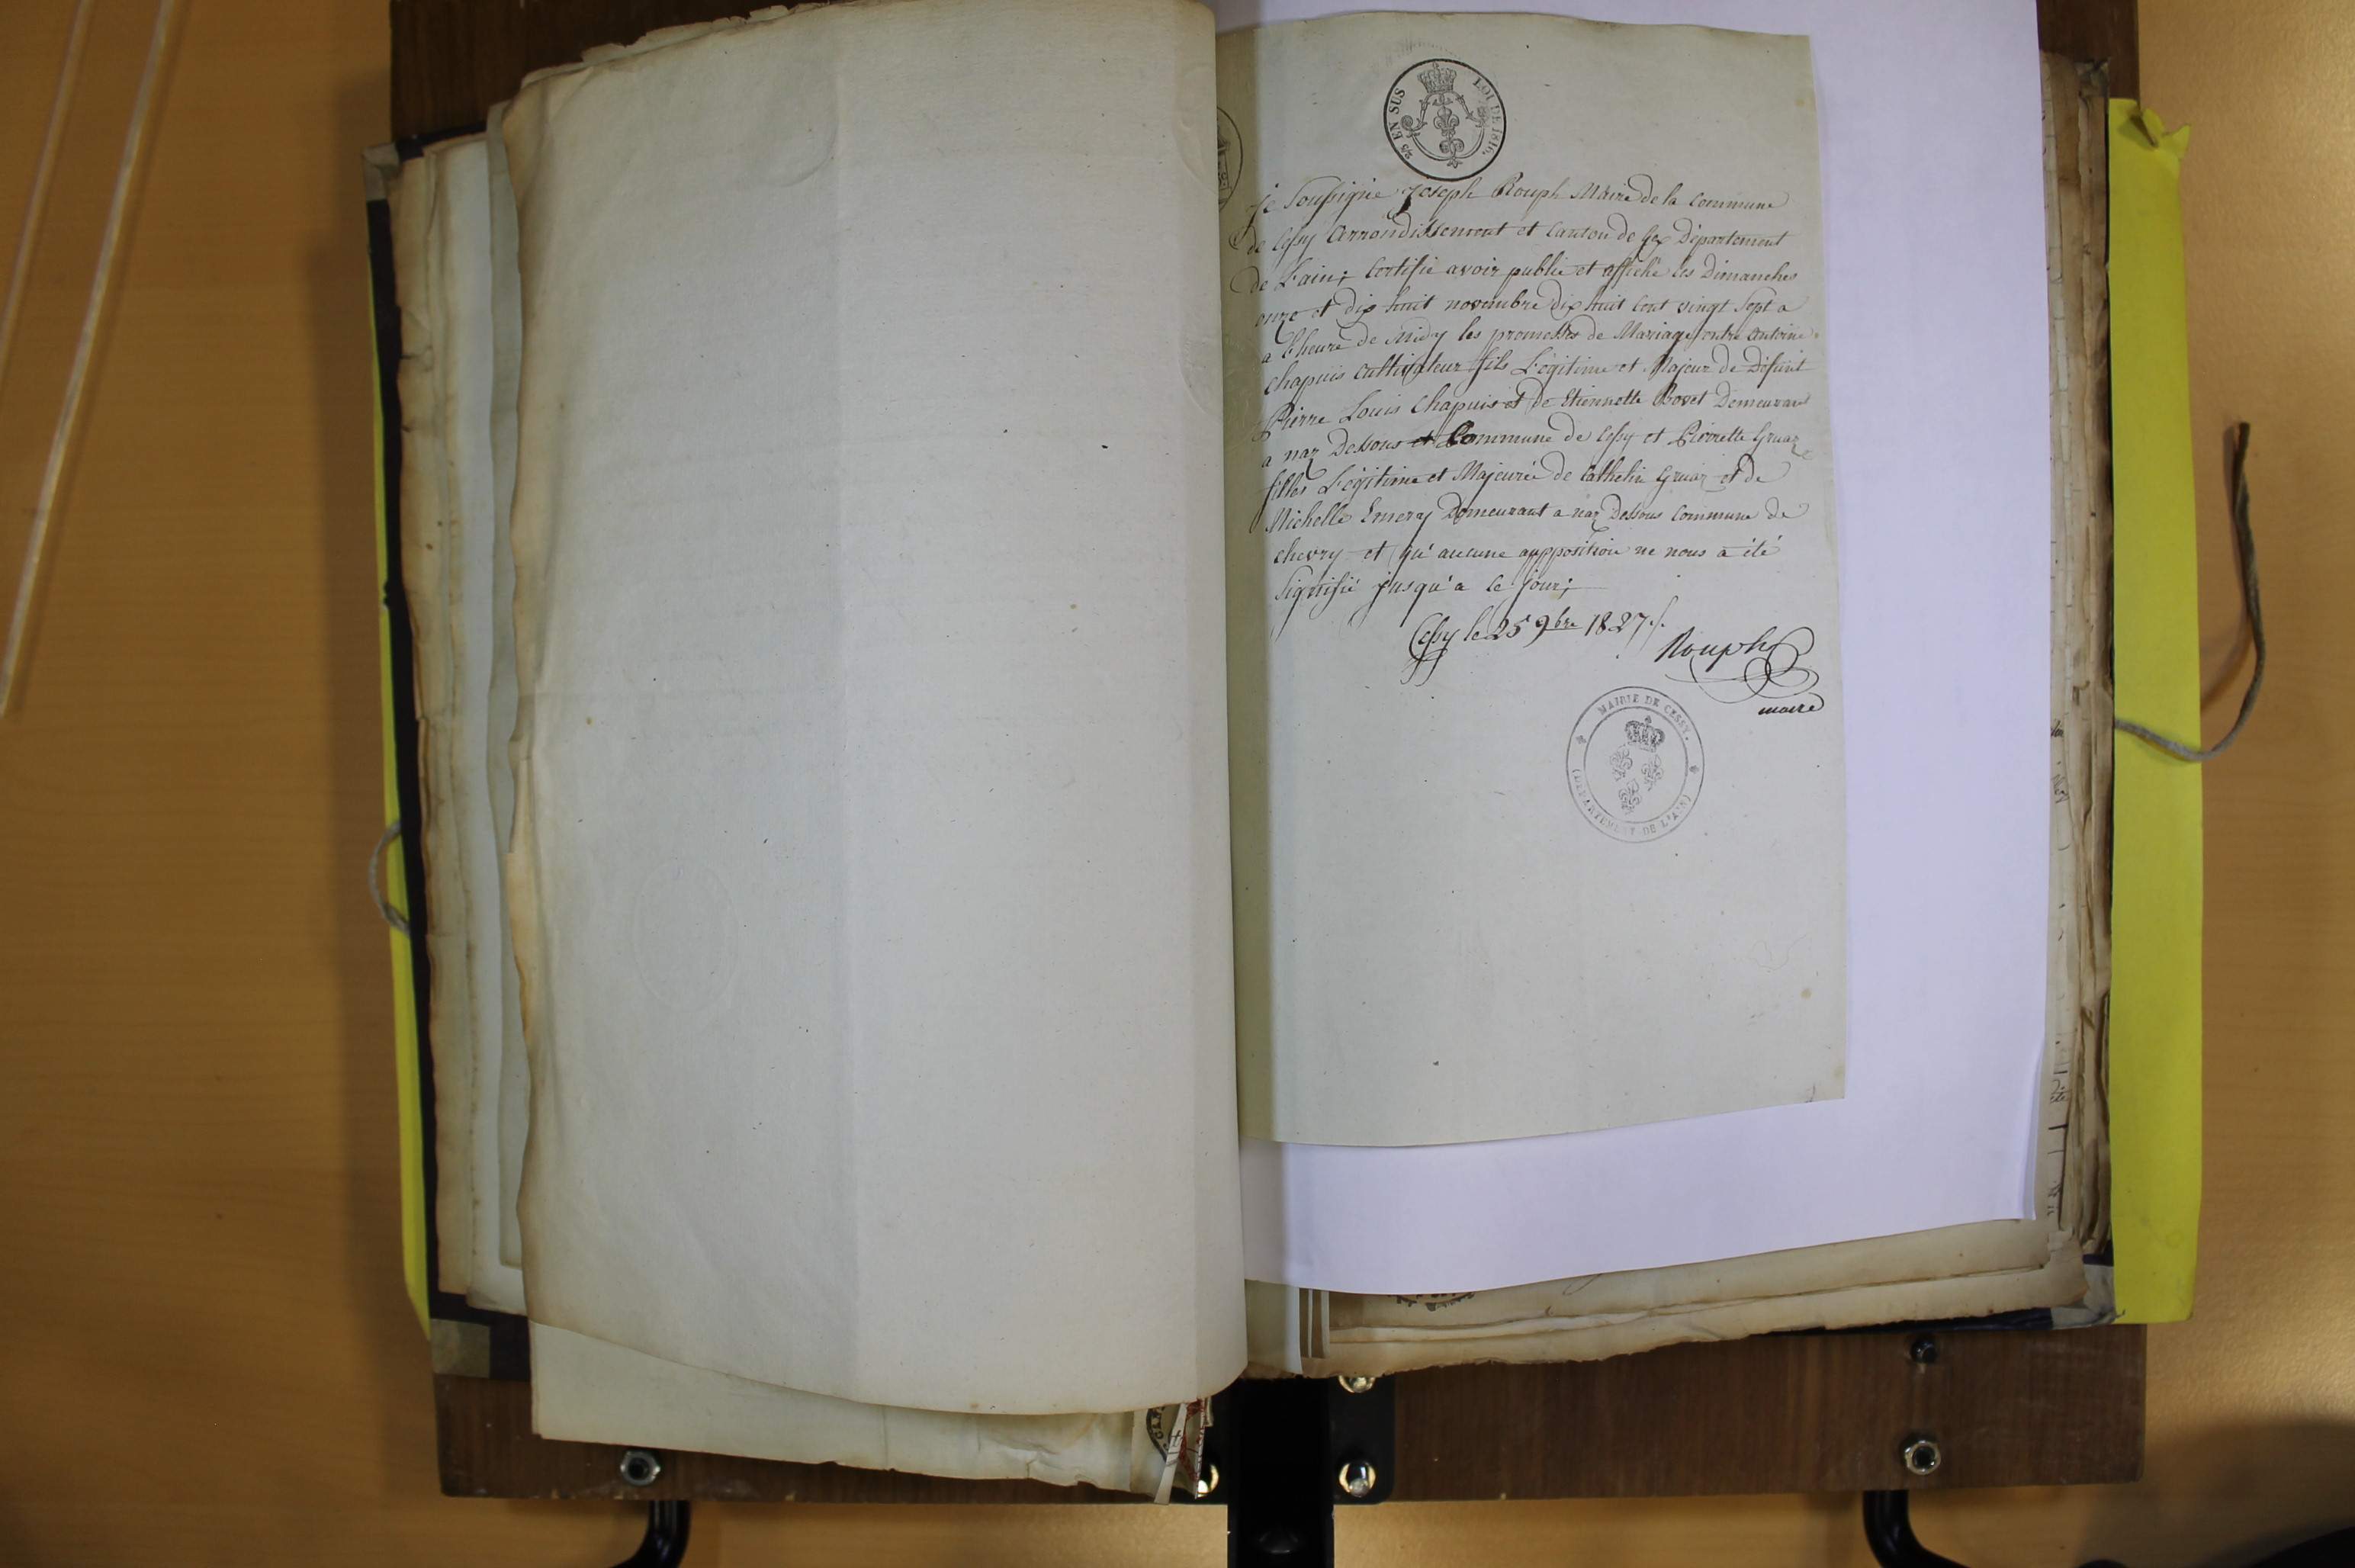 2/5 EN SUS LOI DE 1816.
Je Soussigné Joseph Rouph Maire de la Commune
de Cessy Arrondissement et Canton de Gex Département
de L'ain; Certifie avoir publié et affiché les Dimanches
onze et dix huit novembre dix huit cent vingt Sept a
a L'heure de Midy les promesses de Mariage entre Antoine
Chapuis Cultivateur fils Légitime et Majeur de Défunt
Pierre Louis Chapuis et de Etiennette Bovet Demeurant
a naz Dessous et Commune de Cessy et Pierrette Gruaz
filles Légitime et Majeure de Cathelin Gruaz et de
Michelle Emery Demeurant a naz Dessous Commune de
chevry et qu'aucune appposition ne nous a été
Signifié jusqu'a ce jour;
Cessy le 25 9bre 1827./.
Rouph
maire
MAIRIE DE CESSY.
(DEPARTEMENT DE L'AIN)